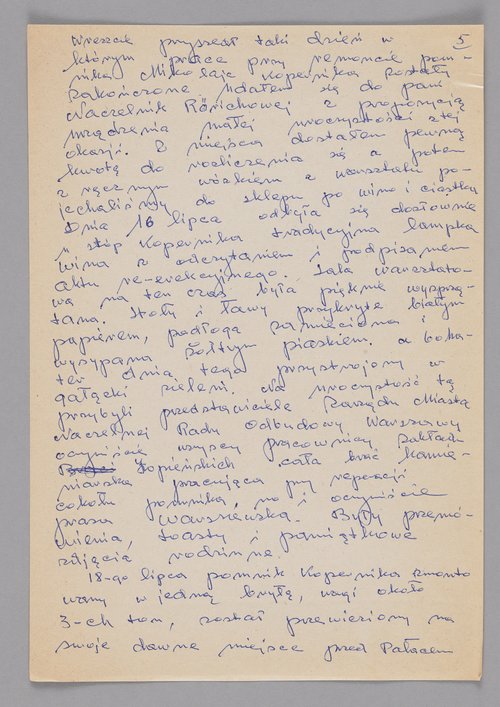 5
Wreszcie przyszedł taki dzień w
którym prace przy remoncie pom-
nika Mikołaja Kopernika zostały
zakończone. Udałem się do pani
Naczelnik Rörichowej z propozycją
urządzenia małej uroczystości z tej
okazji. Z miejsca dostałem pewną
kwotę do rozliczenia się a potem
z ręcznym wózkiem z warsztatu po-
jechaliśmy do sklepu po wino i ciastka
Dnia 16 lipca odbyła się dosłownie
u stóp Kopernika tradycyjna lampka
wina z odczytaniem i podpisaniem
aktu re-erekcyjnego. Sala warsztato-
wa na ten czas była pięknie wysprzą-
tana. Stoły i ławy przykryte białym
papierem, podłoga zamieciona i
wysypana żółtym piaskiem. a boha-
ter dnia tego przystrojony w
gałązki zieleni. Na uroczystość tę
przybyli przedstawiciele Zarządu Miasta
Naczelnej Rady Odbudowy Warszawy
oczywiście wszyscy pracownicy zakładu
Łopieńskich cała brać kamie-
niarska pracująca przy reperacji
cokołu pomnika, no i oczywiście
prasa warszawska. Były przemó-
wienia, toasty i pamiątkowe
zdjęcia rodzinne.
18-go lipca pomnik Kopernika zmonto
wany w jedną bryłę, wagi około
3-ch ton, został przewieziony na
swoje dawne miejsce przed Pałacem